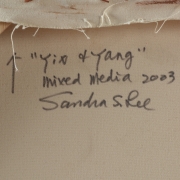 "Yin & Yang"
mixed media 2003
Sandra S. Lee